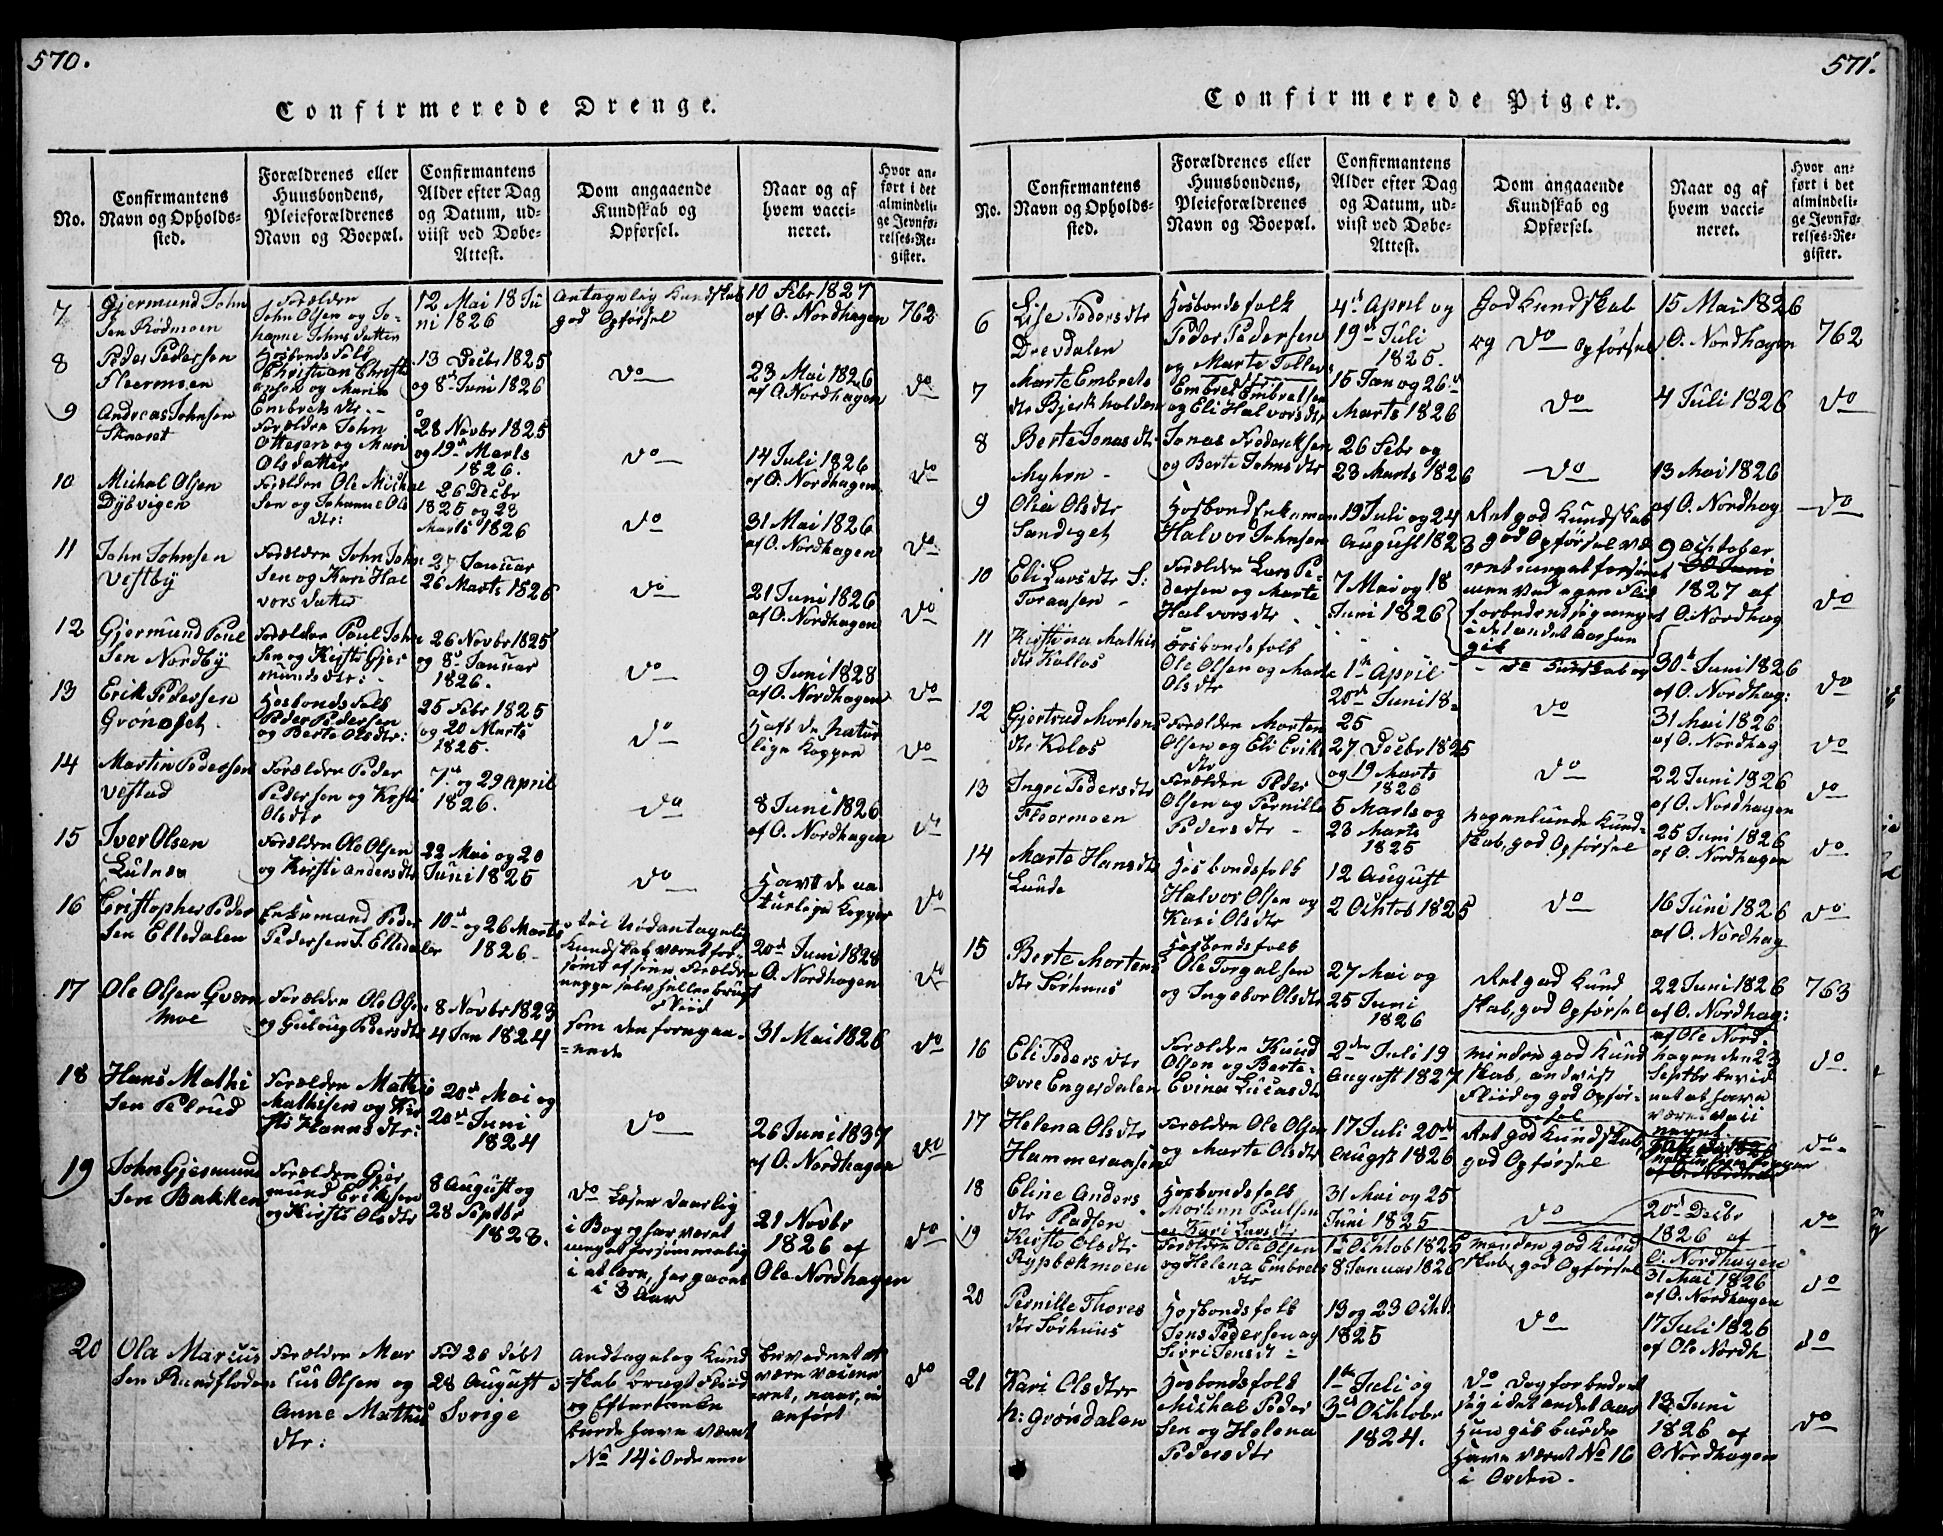 570.
Confirmerede Drenge.
No.
Confirmantens
Navn og Opholds-
sted.
Forældrenes eller
Huusbondens,
Pleieforældrenes
Navn og Boepæl.
Confirmantens
Alder efter Dag
og Datum, ud-
viist ved Døbe-
Attest.
Dom angaaende
Kundskab og
Opførsel.
Naar og af
hvem vacci-
neret.
Hvor an-
ført i det
almindeli-
ge Jevnfø-
relses-Re-
gister.
7
Gjermund John
Sen Rødmoen
Forælder
John Olsen og Jo-
hanne Johns datter
12 Mai 18 Ju
ni 1826
Antagelig Kundskab
god Opførsel
10 Febr 1827
af O. Nordhagen
762
8
Peder Pedersen
Fleermoen
Hosbonds Folk
Christian Christi
ansen og Maria
Embrets dtr.
13 Decbr 1825
og 8de Juni 1826
do
23 Mai 1826
af O. Nordhagen
do
9
Andreas Johnsen
Skaaret
Forælder John
Ottersen og Mari
Olsdatter
28 Novbr 1825
og 19de Marts
1826.
do
14 Juli 1826
af O. Nordhagen
do
10
Michal Olsen
Dybvigen
Forælder Ole Michal
Sen og Johanne Ols
dtr:
26 Decbr
1825 og 23
Marts 1826
do
31 Mai 1826
af O. Nordhagen
do
11
John Johnsen
Vestby
Forælder John John
Sen og Kari Hal
vors datter
27 Januar
26 Marts 1826
do
21 Juni 1826
af O. Nordhagen
do
12
Gjermund Poul
Sen Nordby
Forælder Poul John
Sen og Kirsti Gjer
munds dtr:
26 Novbr 1825
og 8de Januar
1826.
do
9 Juni 1828
af O. Nordhagen
do
13
Erik Pedersen
Grønoset
Hosbonds Folk
Peder Pedersen
og Berte Olsdtr:
25 Febr 1825
og 20 Marts
1825.
do
Haft de natur
lige Kopper
do
14
Martin Pedersen
Vestad
Forælder Peder
Pedersen og Kirsti
Olsdtr
7de og 29 April
1826.
do
8 Juni 1826
af O. Nordhagen
do
15
Iver Olsen
Lutnes
Forælder Ole Olsen
og Kirsti Anders dtr
22 Mai og 20
Juni 1825
do
Havt de na
turlige Kopper
do
16
Cristopher Peder
Sen Elledalen
Enkemand Peder
Pedersen S. Elledalen
10de og 26 Marts
1826.
20de Juni 1828
O. Nordhagen
do
17
Ole Olsen Qværn
moe
Forælder Ole Olsen
og Gulaug Peders dtr
8 Novbr 1823
4 Jan 1824
som den foregaa-
ende
31 Mai 1826
do
18
Hans Mathi
Sen Pelrud
Forælder Mathis
Mathisen og Kir
sti Hanns dtr:
20de Mai og
20de Juni
1824
do
26 Juni 1837
af O. Nordhagen
do
19
John Gjermund
Sen Bakken
Forælder Gjer
mund Eriksen
og Kirsti Olsdtr
8 August og
28 Septbr
1823.
do Læser daarlig
i Bog og har været
meget forsømmelig
i at lære, har gaaet
i 3 Aar
21 Novbr
1826 af
Ole Nordhagen
do
20
Ola Marcus
Sen Rundfloden
Forælder Mar
cus Olsen og
Anne Mathis
dtr:
Fød 20 døbt
28 August
Sverige
Antagelig Kund
skab brugt Fliid
og Eftertanke
burde have været
No 14 i Ordenen
bevidnet at
være vaccine
ret, naar, ei
anført
do
571.
Confirmerede Piger.
No.
Confirmantens
Navn og Opholds-
sted.
Forældrenes eller
Huusbondens,
Pleieforældrenes
Navn og Boepæl.
Confirmantens
Alder efter Dag
og Datum, ud-
viist ved Døbe-
Attest.
Dom angaaende
Kundskab og
Opførsel.
Naar og af
hvem vacci-
neret.
Hvor an-
ført i det
almindeli-
ge Jevnfø-
relses-Re-
gister.
6
Lise Peders dtr
Drevdalen
Hosbondsfolk
Peder Pedersen
og Marte Tollevs
4de April og
19de Juli
1825.
God Kundskab
og do Opførsel
15 Mai 1826
O. Nordhagen
762
7
Marte Embrets
dtr Bjerkholden
Embret Embretsen
og Eli Halvors dtr
15 Jan og 26de
Marts 1826
do
4 Juli 1826
do
8
Berte Jonas dtr
Myhren
Jonas Frederiksen
og Berte Johns dtr
26 Febr og
23 Marts 1826
do
13 Mai 1826
af O. Nordhag
do
9
Olia Olsdtr
Sandeget
Hosbond Enkeman
Halvor Johnsen
19 Juli og 24
August 182
Ret god Kundskab
god Opførsel
9 Ochtober
1827 af
O. Nordhag
10
Eli Lars dtr S:
Toraasen
Forælder Lars Pe-
dersen og Marte
Halvors dtr
7 Mai og 18
Juni 1826
do
11
Kirstina Mathis
dtr Kollos
Hosbondsfolk
Ole Olsen og Marte
Olsdtr
1ste April
20de Juni 18-
25
do Kundskab og
30te Juni 1826
af O. Nordhag:
do
12
Gjertrud Mortens
dtr Kolos
Forælder Morten
Olsen og Eli Eriks
dtr
27 Decbr 1825
og 19 Marts
1826
do
31 Mai 1826
af O. Nordhag
do
13
Ingri Peders dtr
Fleermoen
Forælder Peder
Olsen og Pernille
Peders dtr
5 Marts og
23 Marts
1825
do
22 Juni 1826
af O. Nordhagen
do
14
Marte Hans dtr
Lunde
Hosbondsfolk
Halvor Olsen og
Kari Olsdtr
12 August
2 Ochtob 1825
nogenlunde Kund-
skab, god Opførsel
do
25 Juni 1826
af O. Nordhagen
16 Juni 1826
af O. Nordhag
do
do
15
Berte Mortens
dtr Sørhuus
Hosbondsfolk
Ole Torgalsen
og Ingebor Olsdtr
27 Mai og
25 Juni
1826
Ret god Kund
skab, god Opførsel
22 Juni 1826
af O. Nordhag:
763
16
Eli Peders dtr
øvre Engerdalen
Forælder Knud
Olsen og Berte
Evina Lucas dtr
2den Juli 19
August 1827
minder god Kund
skab, anvist
Fliid og god Opfør-
sel
af Ole Nord-
hagen den 23
Septbr bevid
net at have
været vacci
neret
do
17
Helena Olsdtr
Hammeraasen
Forælder Ole Olsen
og Marte Olsdtr
17 Juli 20de
August 1826
Ret god Kundskab
god Opførsel
do
18
Eline Anders
dtr Pladsen
Hosbondsfolk
Morten Poulsen
og Kari Larsdtr
31 Mai og 25
Juni 1825
do
20de Decbr
1826 af
O. Nordhagen
do
19
Kirsti Olsdtr
Rypbækmoen
Forælder Ole Olsen
og Helena Embrets
dtr
1ste Ochtob 1825
8 Januar 1826
minder god Kund
skab, god Opførsel
31 Mai 1826
af O. Nordhagen
do
20
Pernille Thores
dtr Sørhuus
Hosbondsfolk
Jens Pedersen og
Siri Jensdt
13 og 23 Ocht.
1825
do
17 Juli 1826
af Ole Nordh
do
21
Kari Olsdtr
N: Grøndalen
Hosbondsfolk
Michal Peder
Sen og Helena
Peders dtr
1ste Juli og
3de Ochtobr
1824.
do dog forbedret
sig i det andet Aar
Hun gik burde
Have været No 16
i Orden.
13 Juni
1826 af
O Nordhagen
do